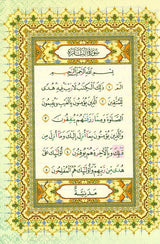 سورة البقرة
بسم الله الرحمن الرحيم
الم ١ ذلك الكتب لا ريب فيه هدى
للمتقين ٢ الذين يؤمنون بالغيب ويقيمون
الصلوة ومما رزقنهم ينفقون ٣
والذين يؤمنون بما أنزل إليك وما أنزل من
قبلك وبالآخرة هم يوقنون ٤ أولئك على
هدى من ربهم وأولئك هم المفلحون ٥